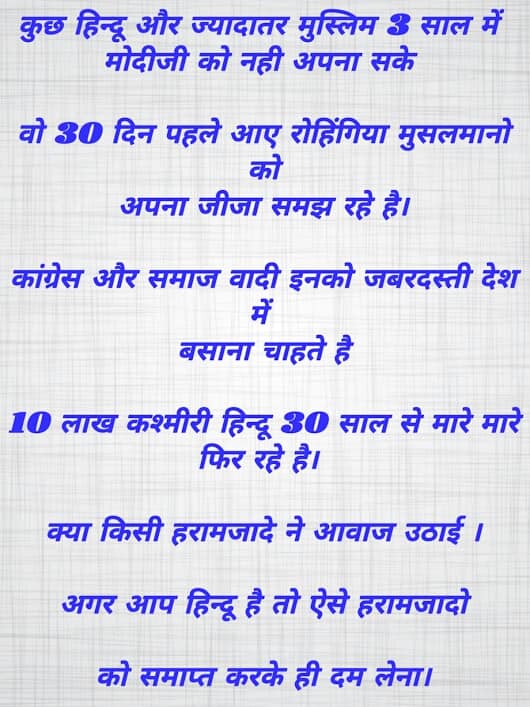 कुछ हिन्दू और ज्यादातर मुस्लिम 3 साल में
मोदीजी को नही अपना सके
वो 30 दिन पहले आए रोहिंगिया मुसलमानो
को
अपना जीजा समझ रहे है।
कांग्रेस और समाज वादी इनको जबरदस्ती देश
में
बसाना चाहते है
10 लाख कश्मीरी हिन्दू 30 साल से मारे मारे
फिर रहे है।
क्या किसी हरामजादे ने आवाज उठाई ।
अगर आप हिन्दू है तो ऐसे हरामजादो
को समाप्त करके ही दम लेना।